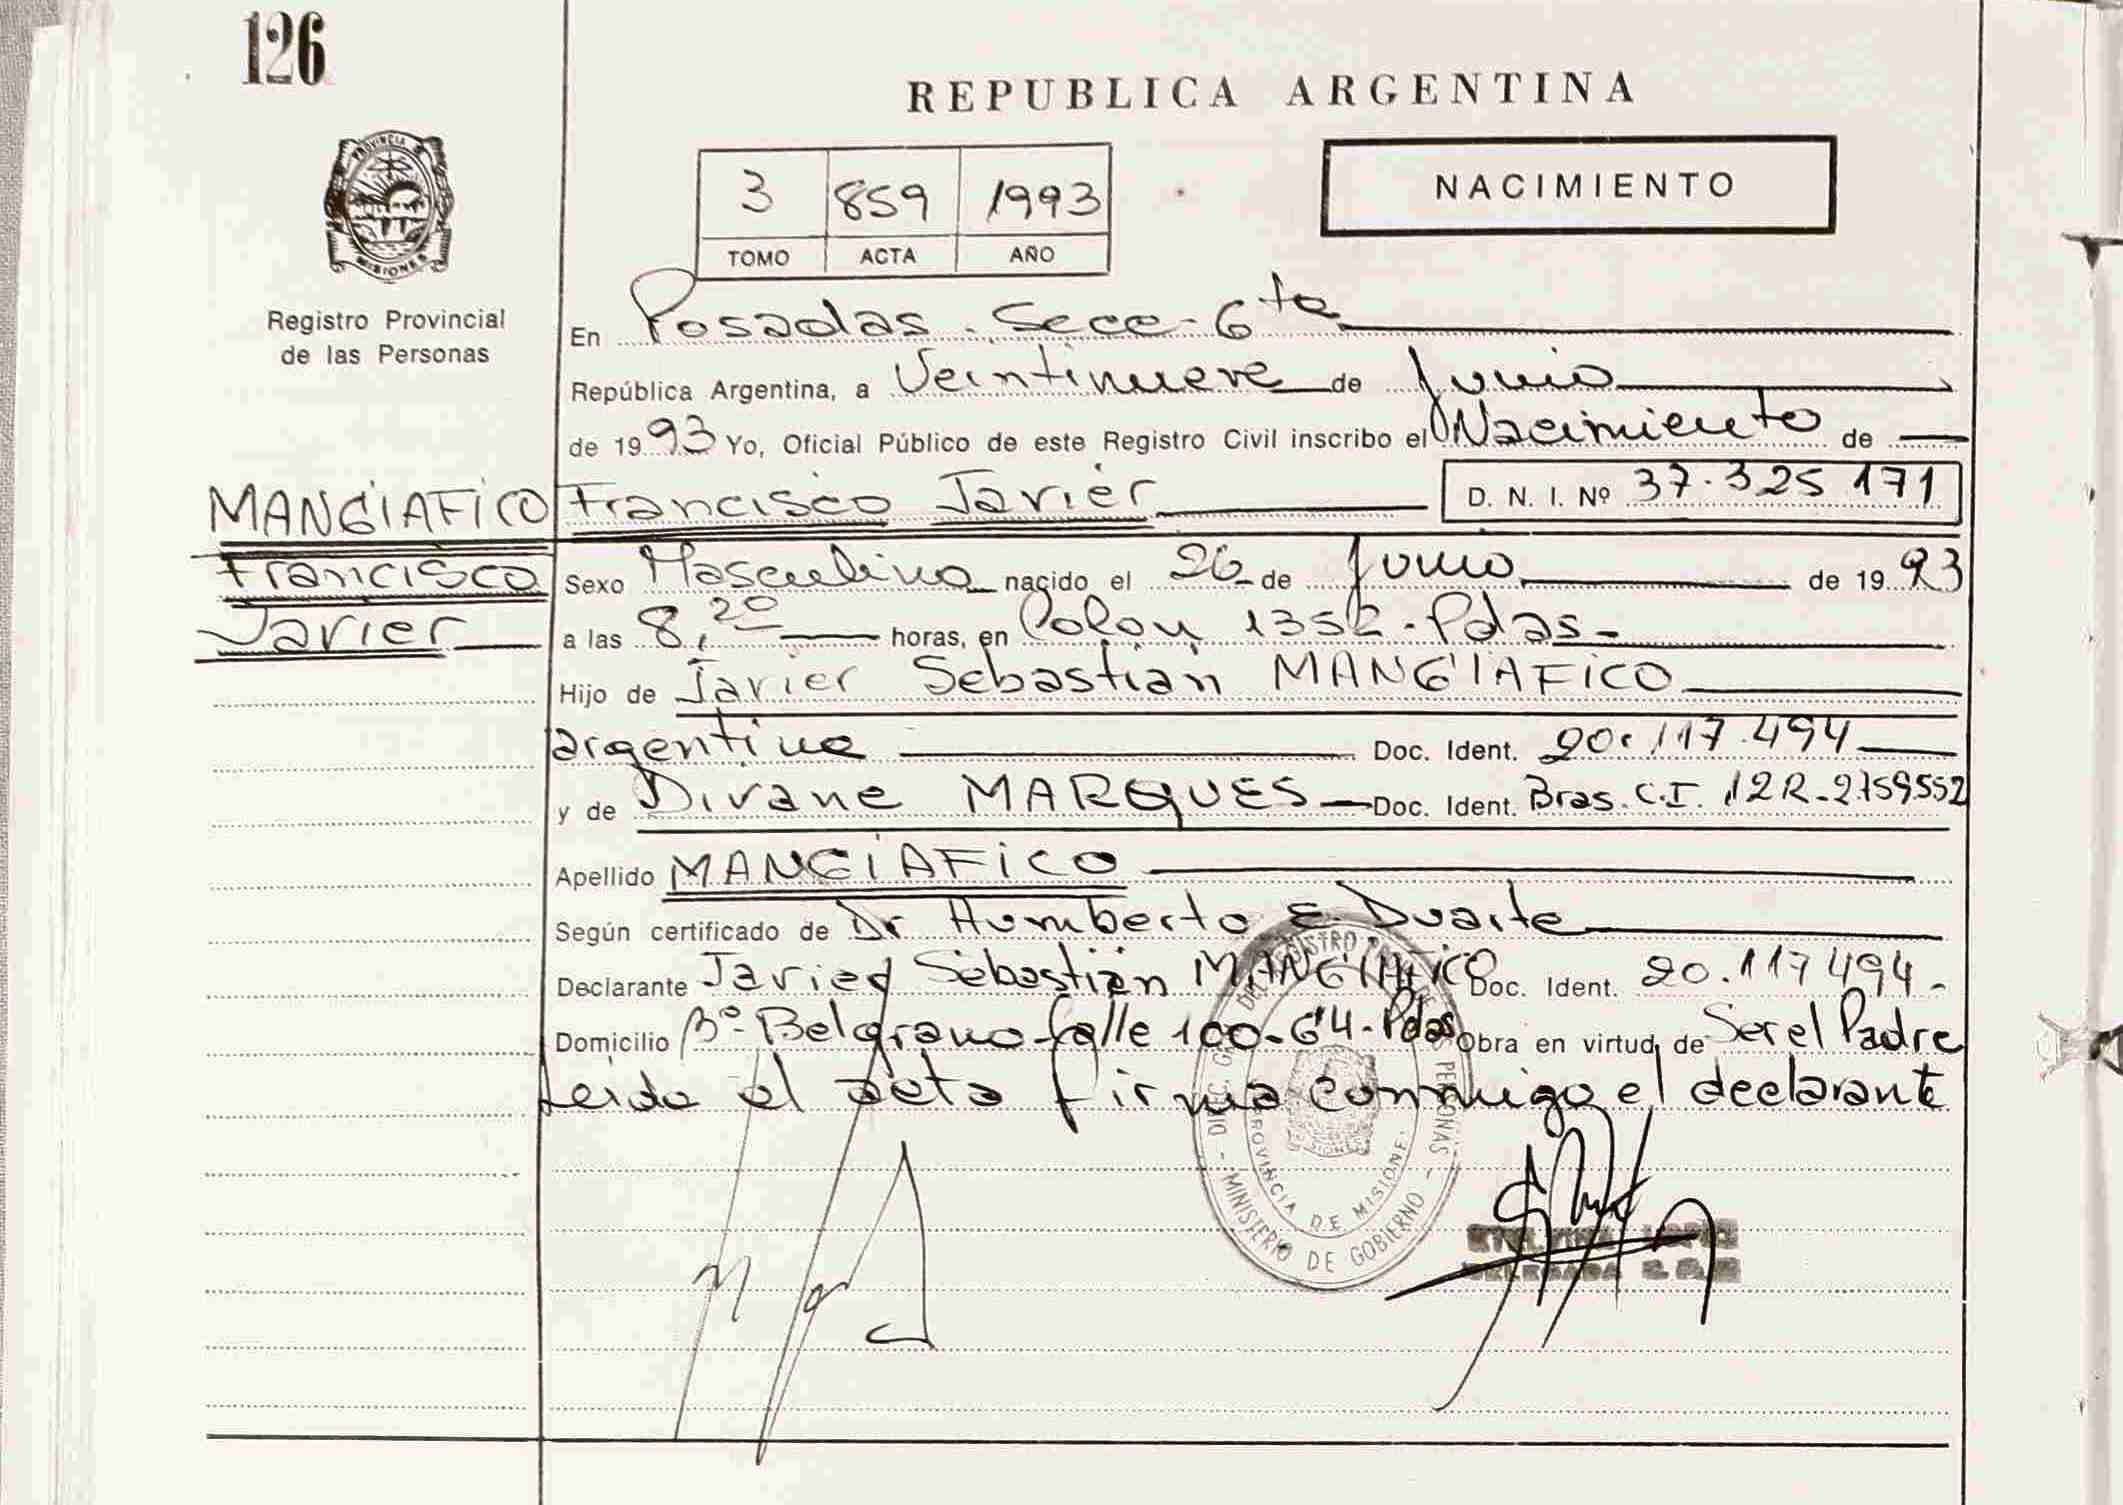 126
REPUBLICA ARGENTINA
PROVINCIA DE
MISIONES
Registro Provincial
de las Personas
3 859 1993
TOMO ACTA AÑO
NACIMIENTO
En Posadas - Secc - 6ta
República Argentina, a Veintinueve de Junio
de 1993 Yo, Oficial Público de este Registro Civil inscribo el Nacimiento de
MANGIAFICO Francisco Javier D. N. I. Nº 37.325 171
Francisco Sexo Masculino nacido el 26 de Junio de 1993
Javier a las 8,20 horas, en Colón 1352 - Pdas -
Hijo de Javier Sebastián MANGIAFICO
argentino Doc. Ident. 20.117.494
y de Divane MARQUES Doc. Ident. Bras. C.I. 12R-2759552
Apellido MANGIAFICO
Según certificado de Dr Humberto E. Duarte
Declarante Javier Sebastián MANGIAFICO Doc. Ident. 20.117 494 -
Domicilio Bº Belgrano Calle 100-64-Pdas Obra en virtud de Ser el Padre
Leida el acta firma conmigo el declarante
REGISTRO PROV. DE LAS PERSONAS - MINISTERIO DE GOBIERNO -
PROVINCIA DE MISIONES
DELEGADA